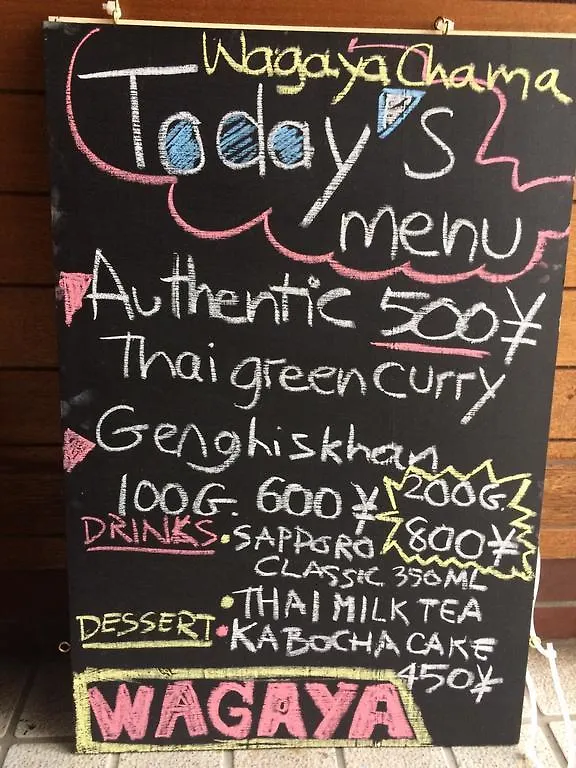 Wagaya Chama
Today's
menu
Authentic 500¥
Thai green curry
Genghiskhan
100G. 600¥ 200G. 800¥
DRINKS • SAPPORO
CLASSIC 350ML
• THAI MILK TEA
DESSERT • KABOCHA CAKE
450¥
WAGAYA